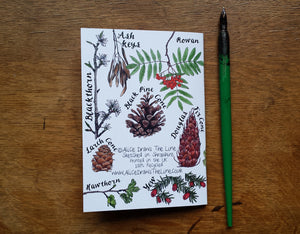 Ash
Keys
Rowan
Blackthorn
Black Pine
Cone
Douglas Fir Cone
Larch Cone
©Alice Draws The Line
Sketched in Shropshire
Printed in the UK
100% Recycled
www.AliceDrawsTheLine.co.uk
Hawthorn
Yew